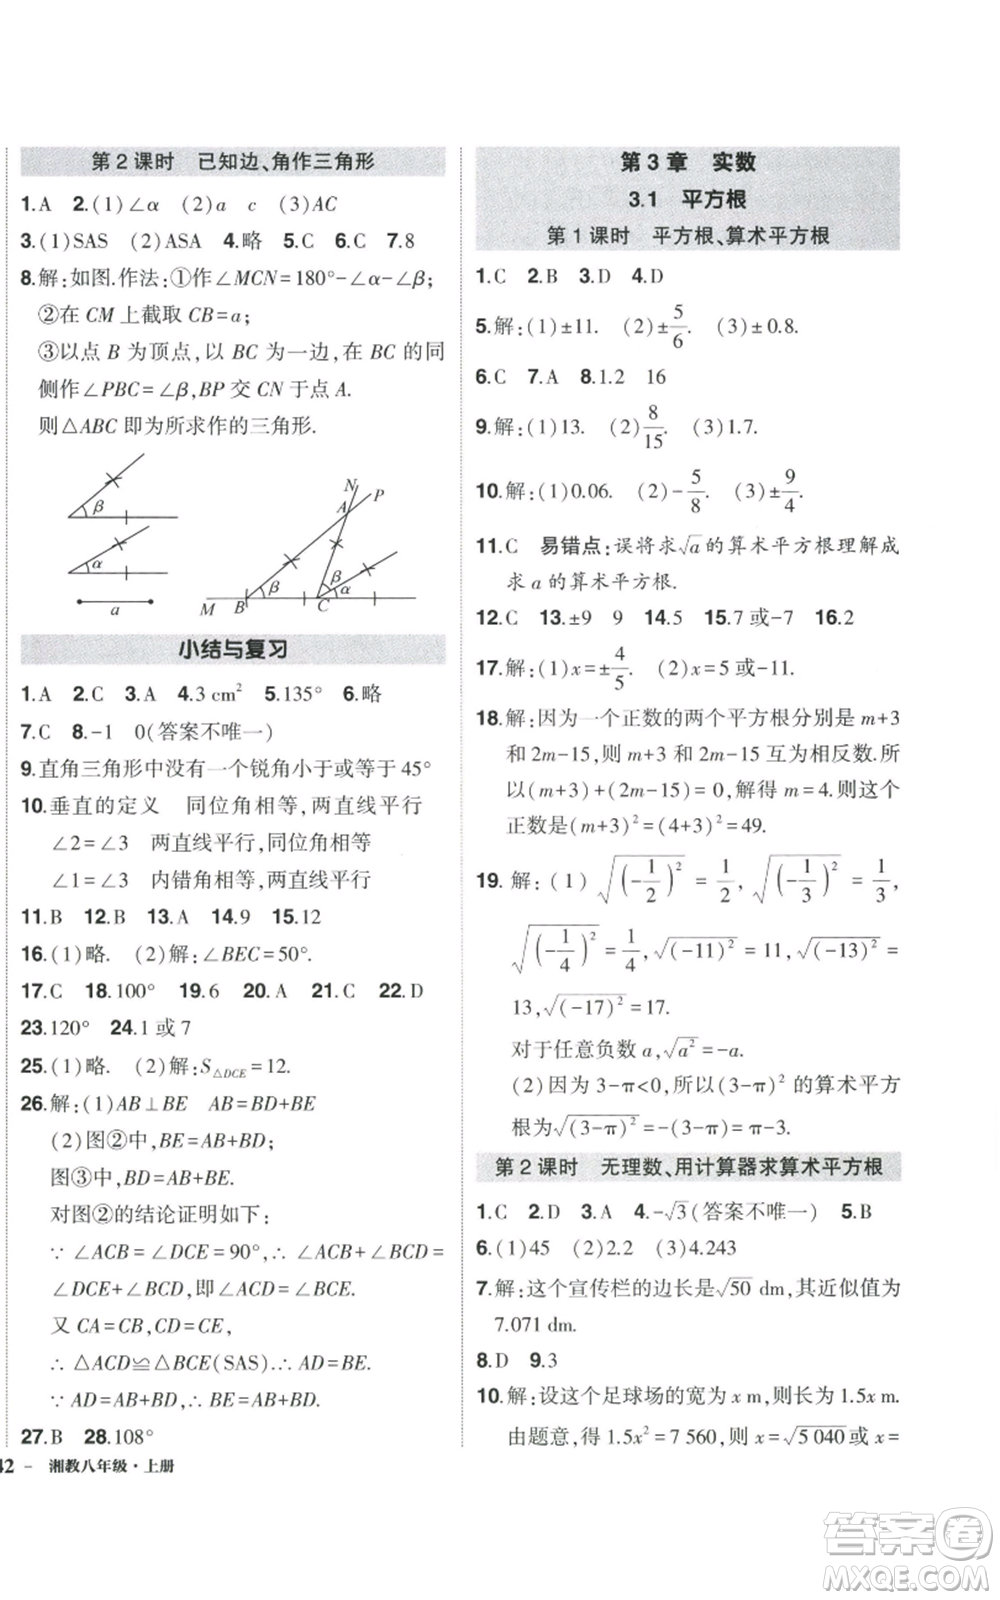 第2课时 已知边、角作三角形
1.A 2.(1)∠α (2)a c (3)AC
3.(1)SAS (2)ASA 4.略 5.C 6.C 7.8
8.解:如图.作法:①作∠MCN=180°-∠α-∠β;
②在 CM 上截取 CB=a;
③以点 B 为顶点,以 BC 为一边,在 BC 的同
侧作∠PBC=∠β,BP 交 CN 于点 A.
则△ABC 即为所求作的三角形.
β
α
a
N
P
A
β
β
α
M
B
C
小结与复习
1.A 2.C 3.A 4.3 cm² 5.135° 6.略
7.C 8.-1 0(答案不唯一)
9.直角三角形中没有一个锐角小于或等于45°
10.垂直的定义 同位角相等,两直线平行
∠2=∠3 两直线平行,同位角相等
∠1=∠3 内错角相等,两直线平行
11.B 12.B 13.A 14.9 15.12
16.(1)略. (2)解:∠BEC=50°.
17.C 18.100° 19.6 20.A 21.C 22.D
23.120° 24.1 或 7
25.(1)略. (2)解:S△DCE=12.
26.解:(1)AB⊥BE AB=BD+BE
(2)图②中,BE=AB+BD;
图③中,BD=AB+BE.
对图②的结论证明如下:
∵∠ACB=∠DCE=90°,∴∠ACB+∠BCD=
∠DCE+∠BCD,即∠ACD=∠BCE.
又 CA=CB,CD=CE,
∴△ACD≌△BCE(SAS).∴AD=BE.
∵AD=AB+BD,∴BE=AB+BD.
27.B 28.108°
42 - 湘教八年级·上册
第3章 实数
3.1 平方根
第1课时 平方根、算术平方根
1.C 2.B 3.D 4.D
5.解:(1)±11. (2)±5/6. (3)±0.8.
6.C 7.A 8.1.2 16
9.解:(1)13. (2)8/15. (3)1.7.
10.解:(1)0.06. (2)-5/8. (3)±9/4.
11.C 易错点:误将求√a的算术平方根理解成
求 a 的算术平方根.
12.C 13.±9 9 14.5 15.7或-7 16.2
17.解:(1)x=±4/5. (2)x=5或-11.
18.解:因为一个正数的两个平方根分别是 m+3
和 2m-15,则 m+3 和 2m-15 互为相反数.所
以(m+3)+(2m-15)=0,解得 m=4.则这个
正数是(m+3)²=(4+3)²=49.
19.解:(1)√(-1/2)²=1/2,√(-1/3)²=1/3,
√(-1/4)²=1/4,√(-11)²=11,√(-13)²=
13,√(-17)²=17.
对于任意负数 a,√a²=-a.
(2)因为 3-π<0,所以(3-π)²的算术平方
根为√(3-π)²=-(3-π)=π-3.
第2课时 无理数、用计算器求算术平方根
1.C 2.D 3.A 4.-√3(答案不唯一) 5.B
6.(1)45 (2)2.2 (3)4.243
7.解:这个宣传栏的边长是√50 dm,其近似值为
7.071 dm.
8.D 9.3
10.解:设这个足球场的宽为 x m,则长为 1.5x m.
由题意,得 1.5x²=7 560,则 x=√5 040≈
答案卷
MXQE.COM